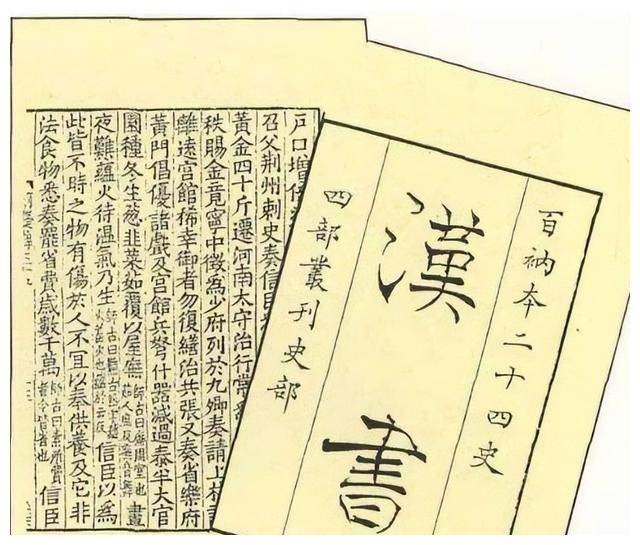 百衲本二十四史
漢書
四部叢刊史部
戶口增倍
召父荊州刺史奏信臣
黃金四十斤遷河南太守治行常
秩賜金竟寧中徵為少府列於九卿奏請上林
離遠宮館稀幸御者勿復繕治共張又奏省樂府
黃門倡優諸戲及宮館兵弩什器減過泰半大官
園種冬生葱韭菜茹覆以屋廡 師古曰廡周室也 晝
夜難蘊火待溫氣乃生 師古曰 信臣以為
此皆不時之物有傷於人不宜以奉供養及它非
法食物悉奏罷省費歲數千萬 師古曰素所費者今皆省也 信臣